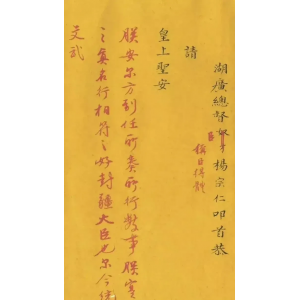 湖廣總督奴才楊宗仁叩首恭
請
皇上聖安
朕安尔方到任所奏所行數事朕實
之爲名行相符之好封疆大臣也尔今
文武